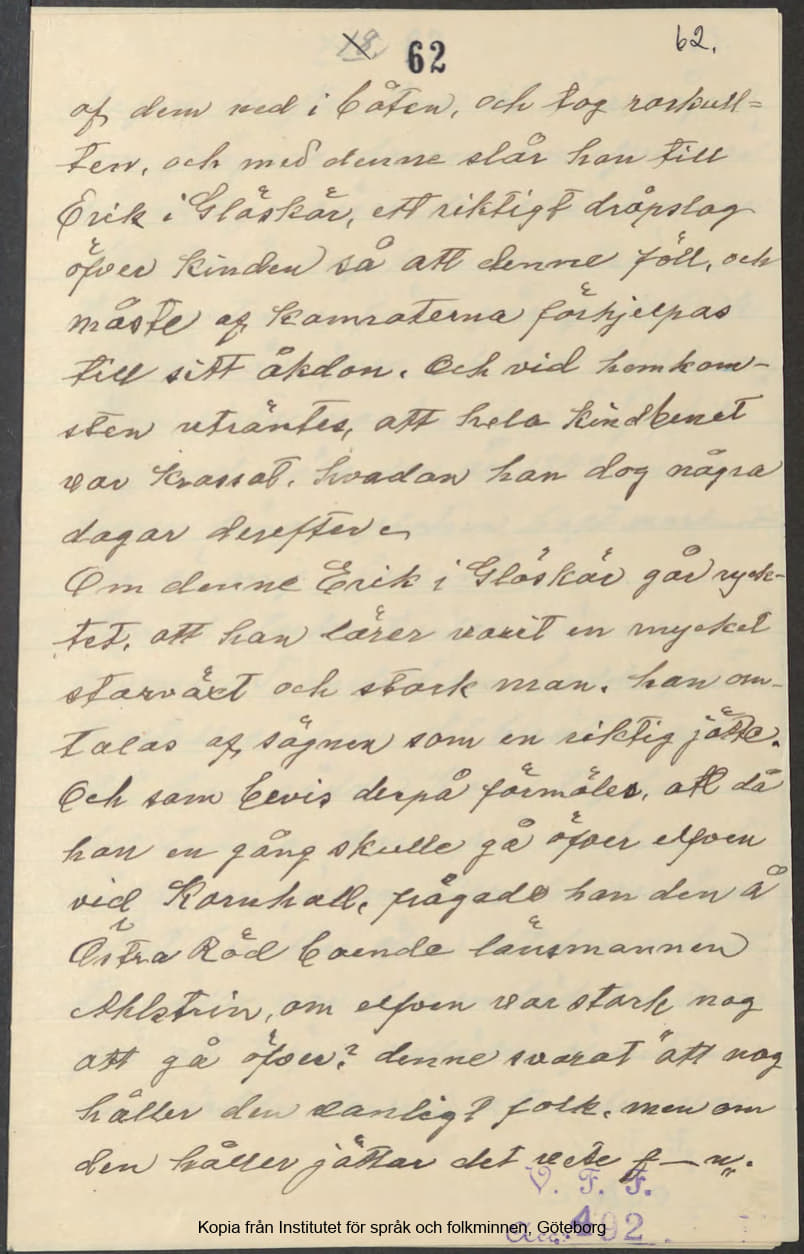 18. 62 62.
af dem ned i båten, och tog rorkull=
ten, och med denne slår han till
Erik i Glöskär, ett riktigt dråpslag
öfver kinden så att denne föll, och
måste af kamraterna förhjelpas
till sitt åkdon. Och vid hemkom-
sten utröntes, att hela kindbenet
var krassat, hvadan han dog några
dagar derefter.
Om denne Erik i Glöskär går ryck-
tet, att han lärer varit en mycket
storväxt och stark man. han om-
talas af sägnen som en riktig jätte.
Och som bevis derpå förmäles, att då
han en gång skulle gå öfver elfven
vid Kornhall, frågade han den å
Östra Röd boende länsmannen
Ahlström, om elfven var stark nog
att gå öfver? denne svarat "att nog
håller den vanligt folk, men om
den håller jättar det vete f—n".
V. F. F.
492
Kopia från Institutet för språk och folkminnen, Göteborg